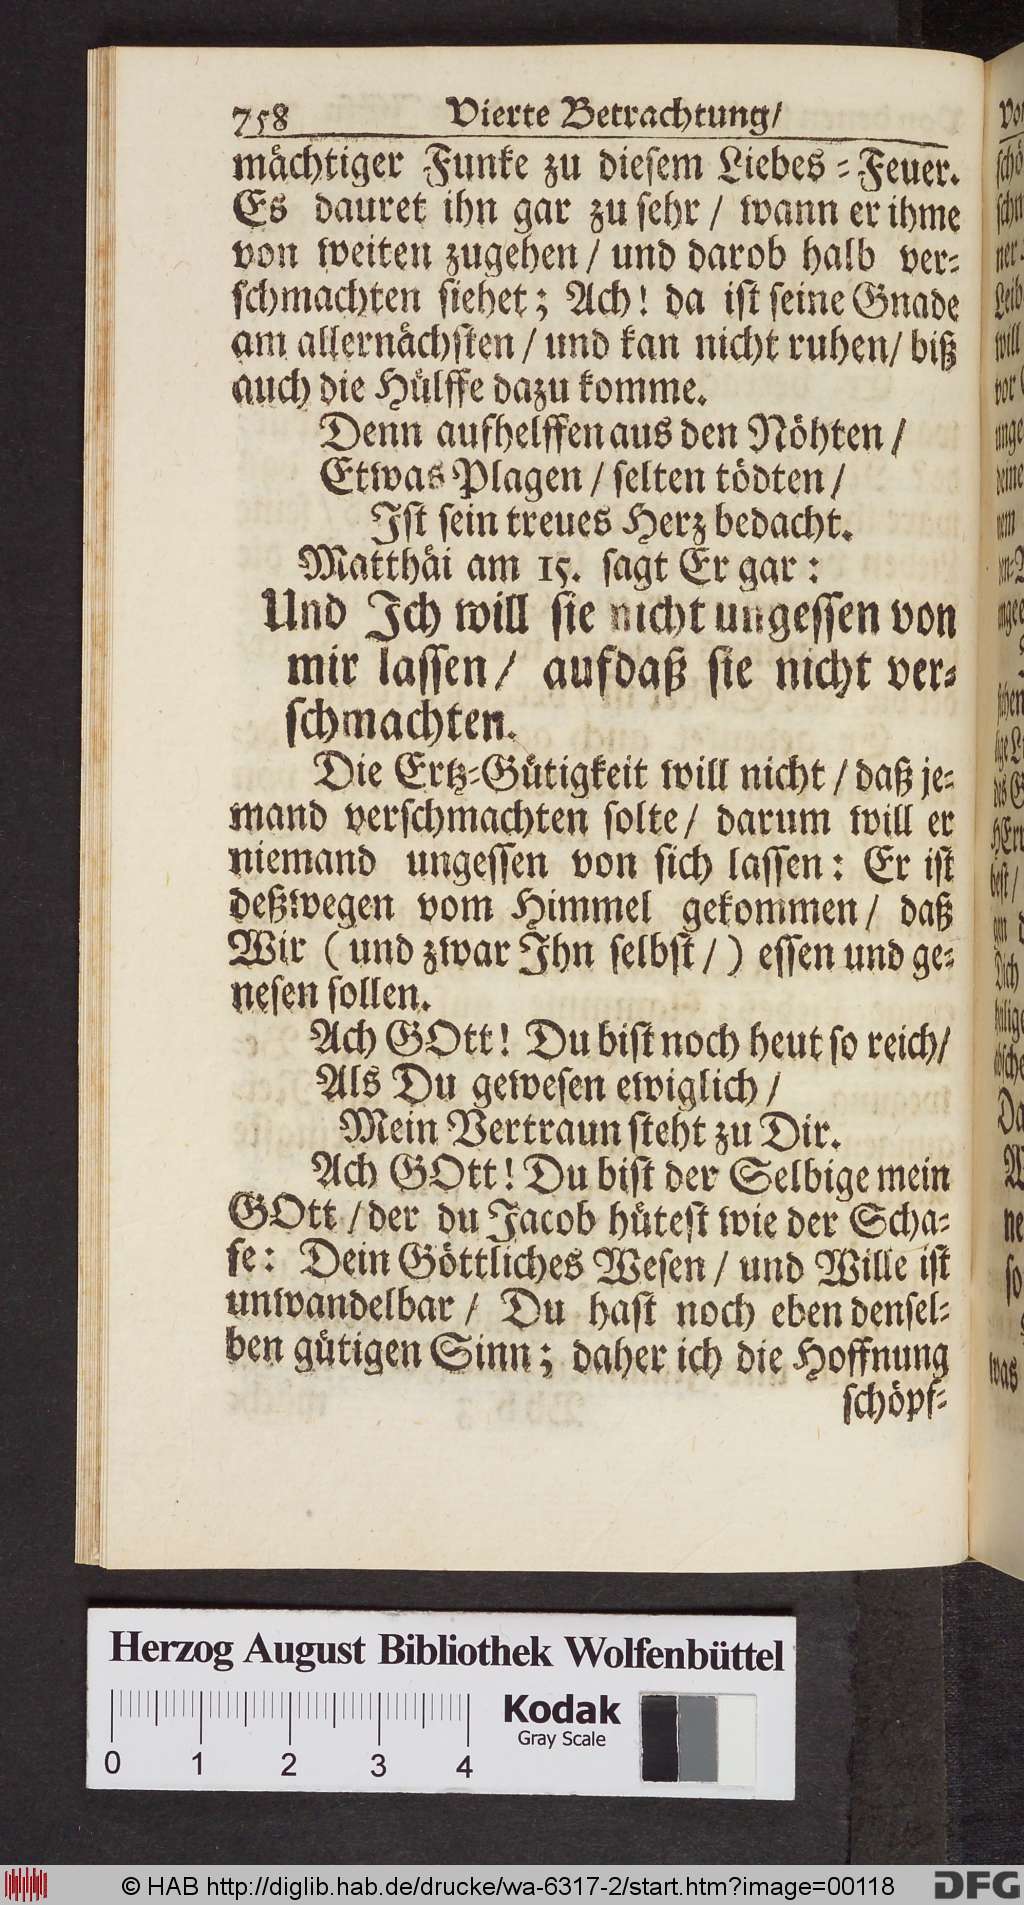 758 Vierte Betrachtung/
mächtiger Funke zu diesem Liebes-Feuer.
Es dauret ihn gar zu sehr / wann er ihme
von weiten zugehen / und darob halb ver-
schmachten siehet; Ach! da ist seine Gnade
am allernächsten / und kan nicht ruhen/ biß
auch die Hülffe dazu komme.
Denn aufhelffen aus den Nöhten /
Etwas Plagen / selten tödten /
Ist sein treues Herz bedacht.
Matthäi am 15. sagt Er gar:
Und Ich will sie nicht ungessen von
mir lassen / aufdaß sie nicht ver-
schmachten.
Die Ertz-Gütigkeit will nicht / daß je-
mand verschmachten solte / darum will er
niemand ungessen von sich lassen: Er ist
deßwegen vom Himmel gekommen / daß
Wir ( und zwar Ihn selbst / ) essen und ge-
nesen sollen.
Ach GOtt! Du bist noch heut so reich/
Als Du gewesen ewiglich /
Mein Vertraun steht zu Dir.
Ach GOtt! Du bist der Selbige mein
GOtt / der du Jacob hütest wie der Scha-
fe: Dein Göttliches Wesen / und Wille ist
unwandelbar / Du hast noch eben densel-
ben gütigen Sinn; daher ich die Hoffnung
schöpf-
Herzog August Bibliothek Wolfenbüttel
Kodak
Gray Scale
0 1 2 3 4
© HAB http://diglib.hab.de/drucke/wa-6317-2/start.htm?image=00118
DFG